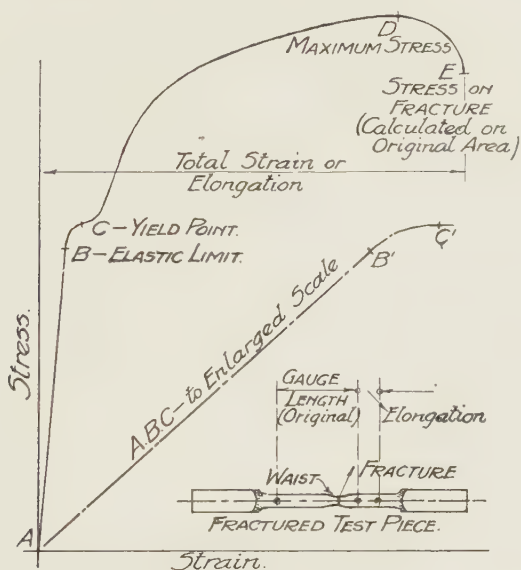 D
MAXIMUM STRESS
E
STRESS ON
FRACTURE
(Calculated on
Original Area)
Total Strain or
Elongation
C-YIELD POINT.
B-ELASTIC LIMIT.
B'
C'
Stress.
A.B.C-to Enlarged Scale
GAUGE
LENGTH
(Original)
Elongation
WAIST
FRACTURE
FRACTURED TEST PIECE.
A
Strain.